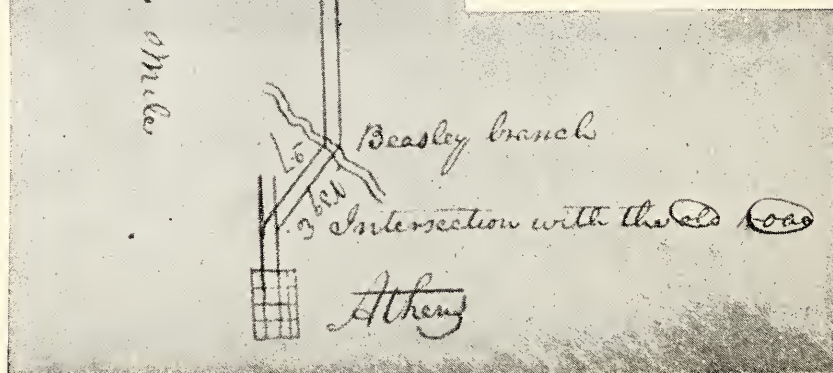 Miles
Beasley branch
Intersection with the old Road
Athens